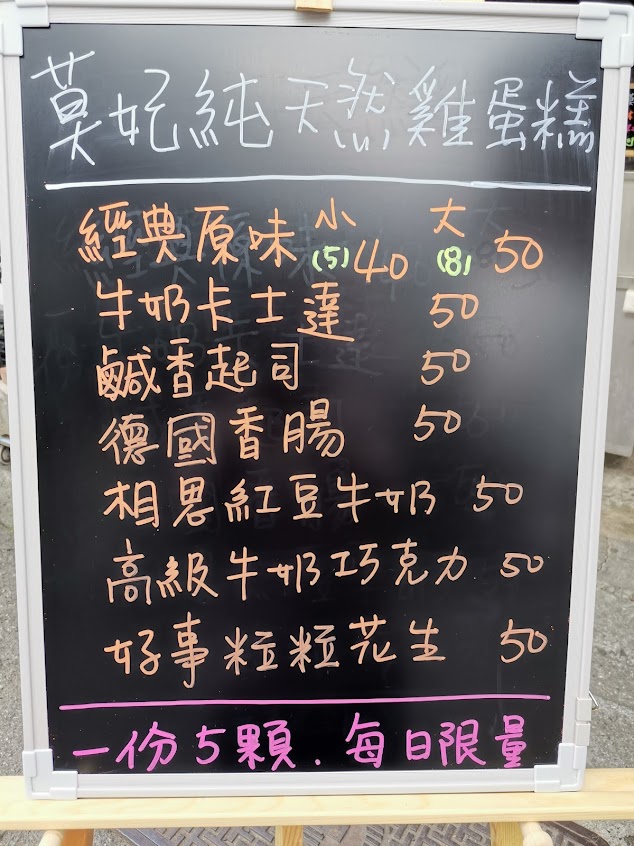 莫妃純天然雞蛋糕
經典原味 小(5)40 大(8)50
牛奶卡士達 50
鹹香起司 50
德國香腸 50
相思紅豆牛奶 50
高級牛奶巧克力 50
好事粒粒花生 50
一份5顆.每日限量